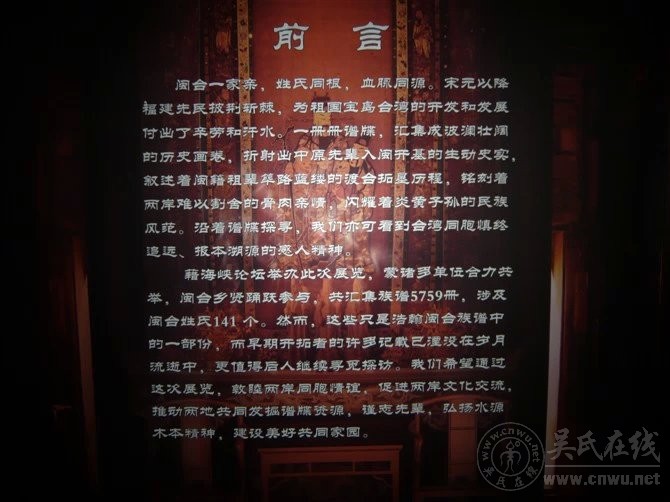 前 言
闽台一家亲，姓氏同根，血脉同源。宋元以降
福建先民披荆斩棘，为祖国宝岛台湾的开发和发展
付出了辛劳和汗水。一册册谱牒，汇集成波澜壮阔
的历史画卷，折射出中原先辈入闽开基的生动史实，
叙述着闽籍祖辈筚路蓝缕的渡台拓垦历程，铭刻着
两岸难以割舍的骨肉亲情，闪耀着炎黄子孙的民族
风范。沿着谱牒探寻，我们亦可看到台湾同胞慎终
追远、报本溯源的感人精神。
藉海峡论坛举办此次展览，蒙诸多单位合力共
举，闽台乡贤踊跃参与，共汇集族谱5759册，涉及
闽台姓氏141个。然而，这些只是浩瀚闽台族谱中
的一部份，而早期开拓者的许多记载已湮没在岁月
流逝中，更值得后人继续寻觅探访。我们希望通过
这次展览，敦睦两岸同胞情谊，促进两岸文化交流，
推动两地共同发掘谱牒资源，谨志先辈，弘扬水源
木本精神，建设美好共同家园。
吴氏在线
www.cnwu.net